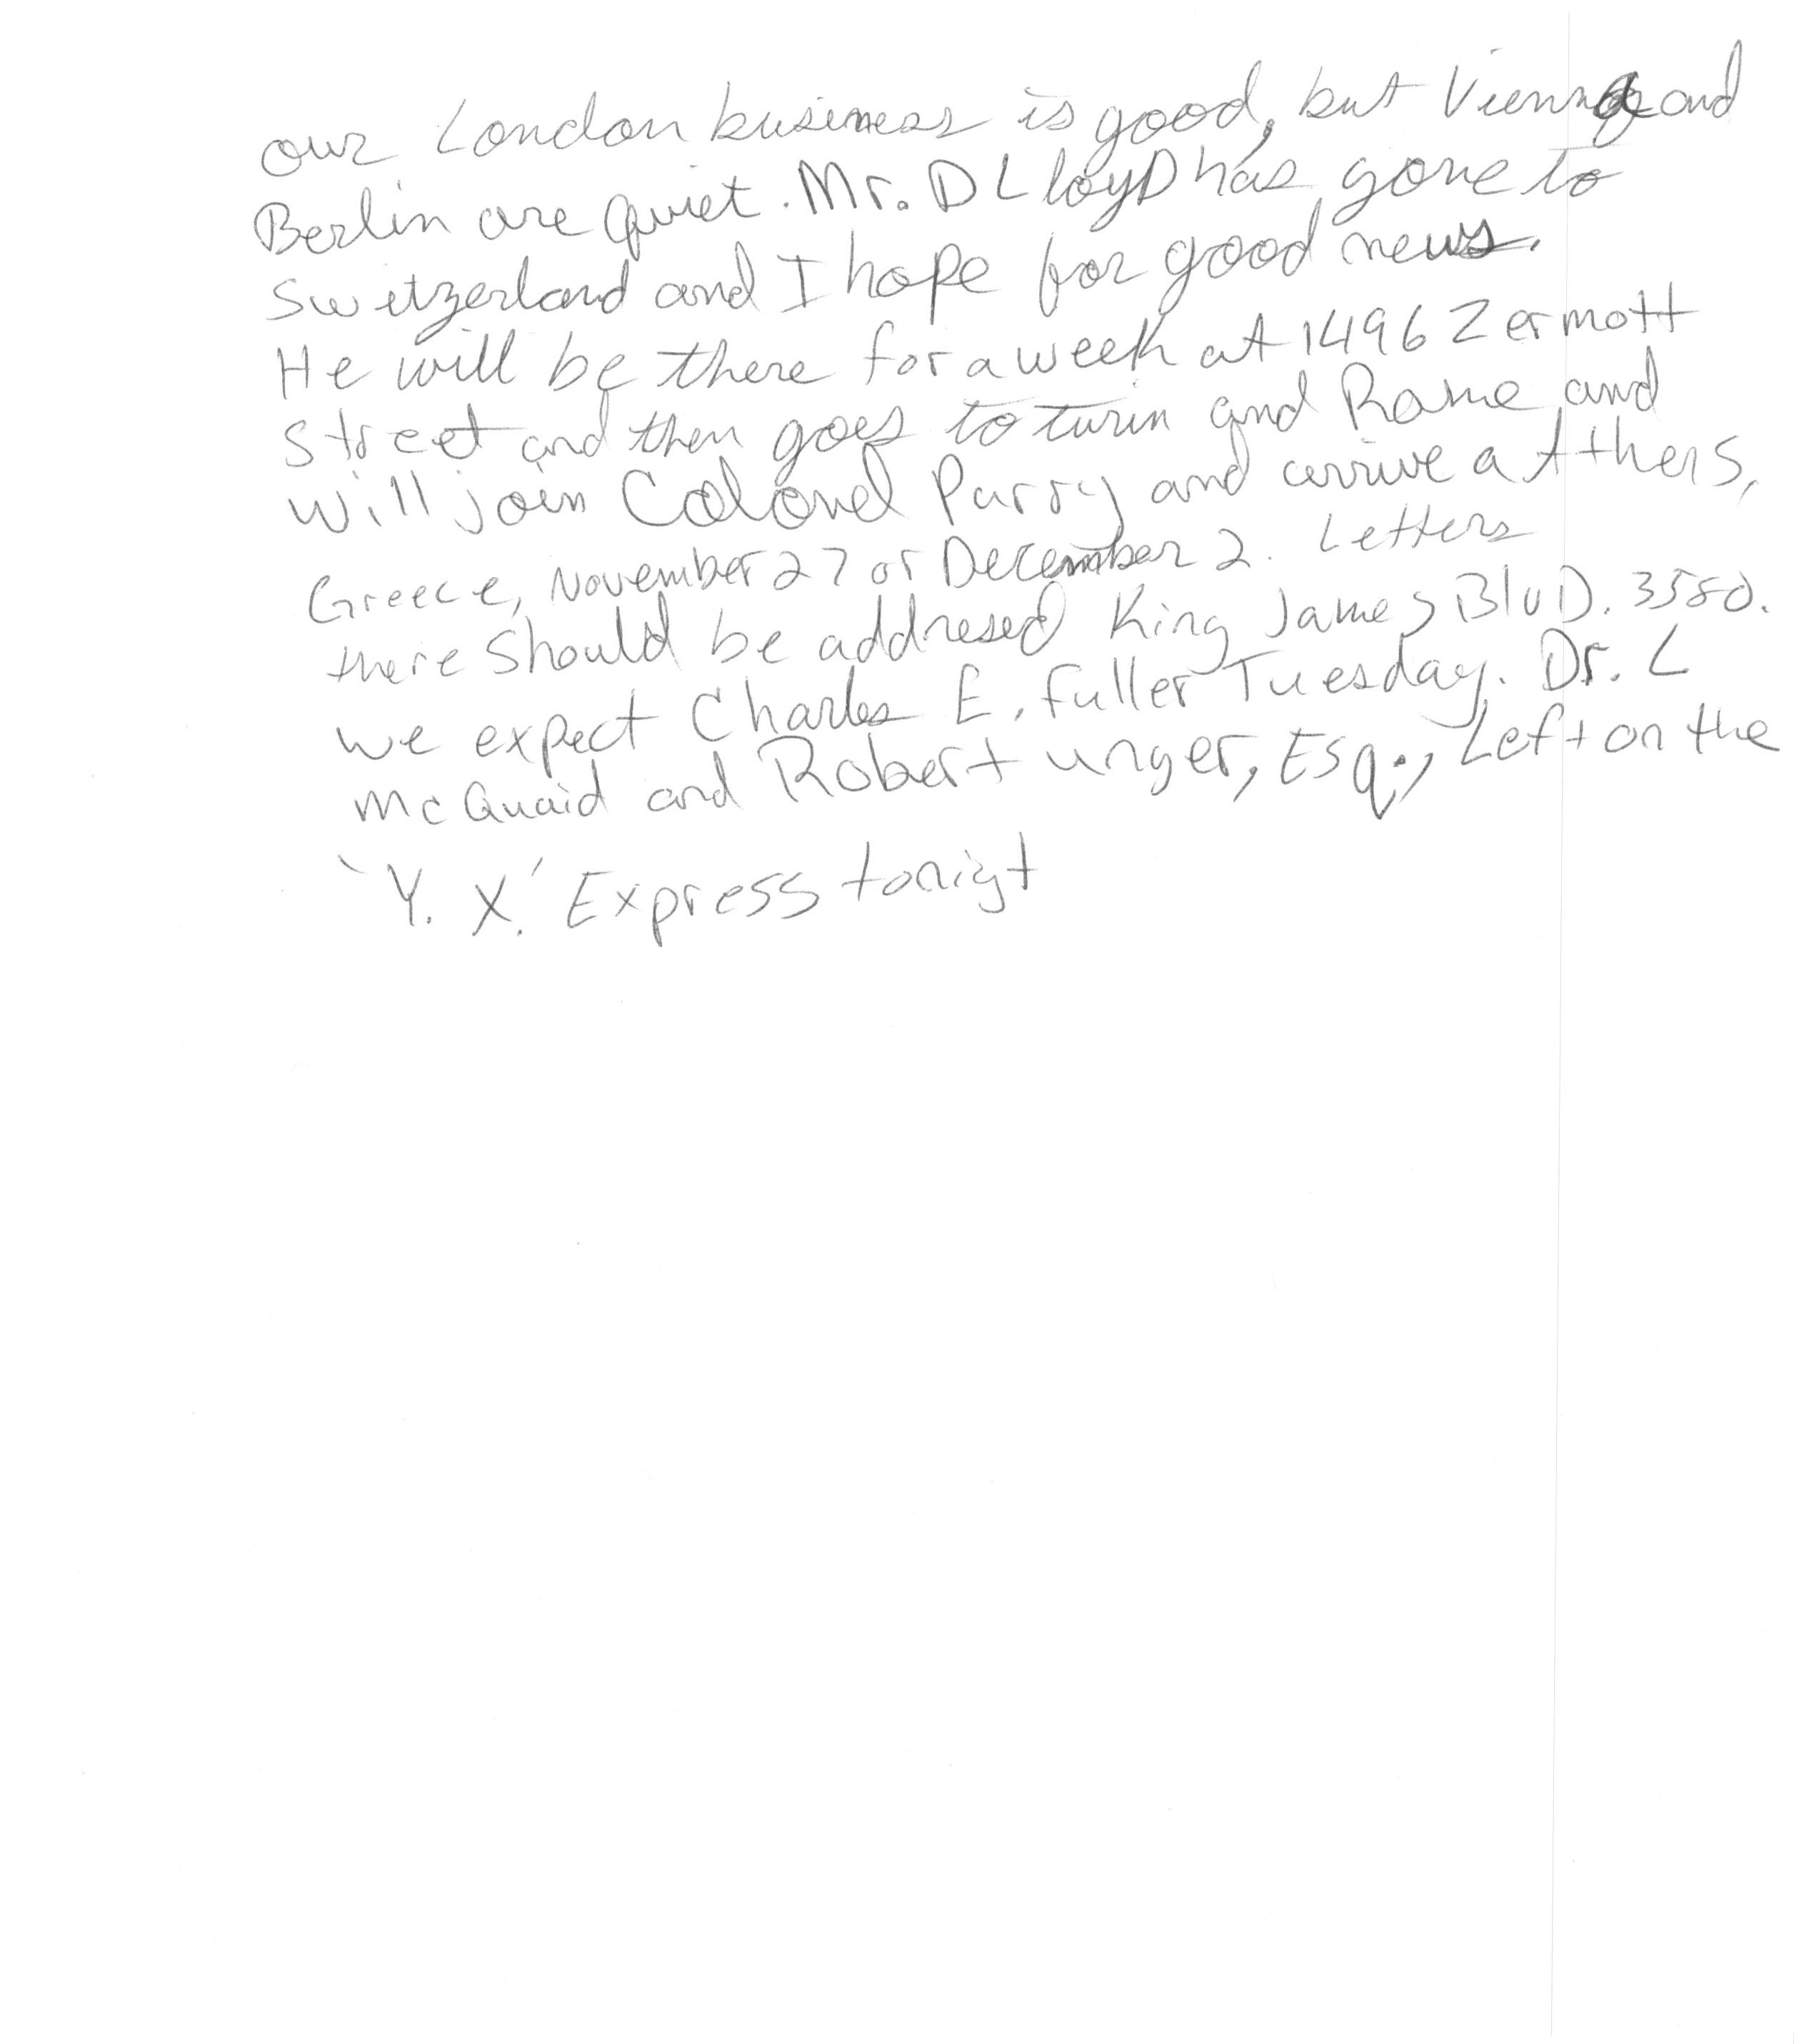 our London business is good, but Vienna and
Berlin are quiet. Mr. D Lloyd has gone to
Switzerland and I hope for good news.
He will be there for a week at 1496 Zermott
Street and then goes to turin and Rome and
will join Colonel Parry and arrive at Athens,
Greece, November 27 or December 2. Letters
there should be addresed King James BlvD. 3580.
we expect Charles E. fuller Tuesday. Dr. L
McQuaid and Robert unger, Esq., Left on the
'Y. X.' Express tonigt